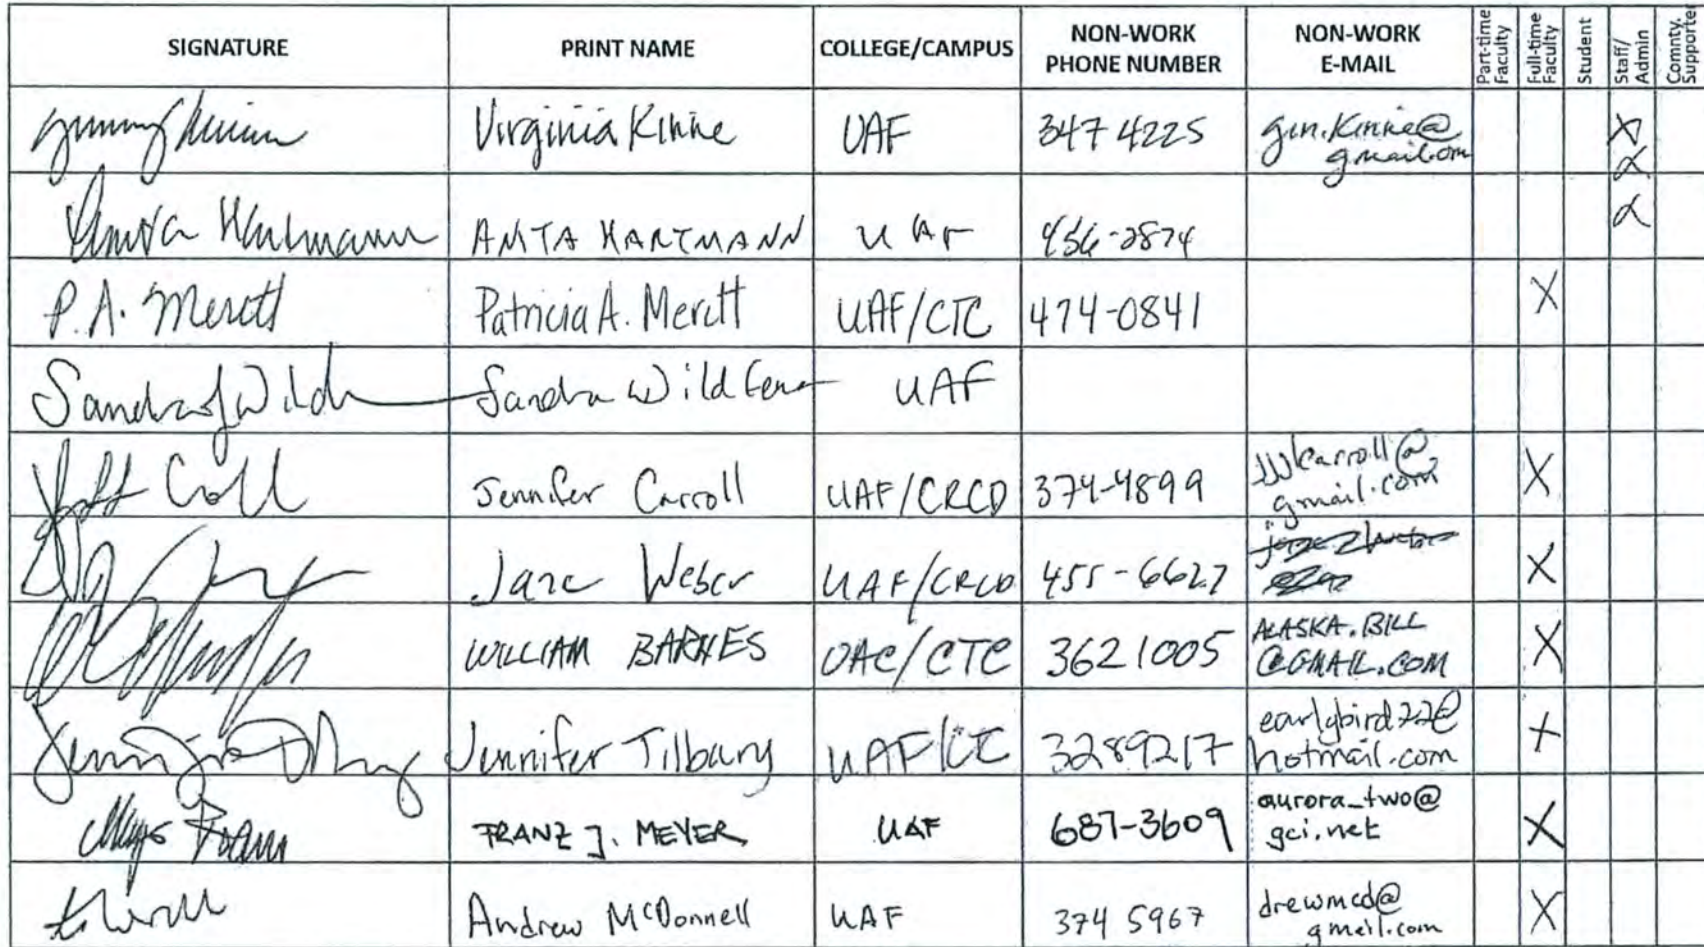 SIGNATURE PRINT NAME COLLEGE/CAMPUS NON-WORK PHONE NUMBER NON-WORK E-MAIL Part-time Faculty Full-time Faculty Student Staff/Admin Comnty. Supporter
Virginia Kinne UAF 347 4225 gin.kinne@
gmail.com X
X
Anita Hartmann ANITA HARTMANN UAF 456-2874 X
P.A. Meritt Patricia A. Meritt UAF/CTC 474-0841 X
Sandra Wild Sandra Wildfeuer UAF
Jennifer Carroll UAF/CRCD 374-4899 jjlcarroll@
gmail.com X
Jane Weber UAF/CRCD 455-6627 X
WILLIAM BARNES UAF/CTC 3621005 ALASKA.BILL
@GMAIL.COM X
Jennifer Tilbury UAF/CTC 3289217 earlybird77@
hotmail.com X
FRANZ J. MEYER UAF 687-3609 aurora_two@
gci.net X
Andrew McDonnell UAF 374 5967 drewmcd@
gmail.com X